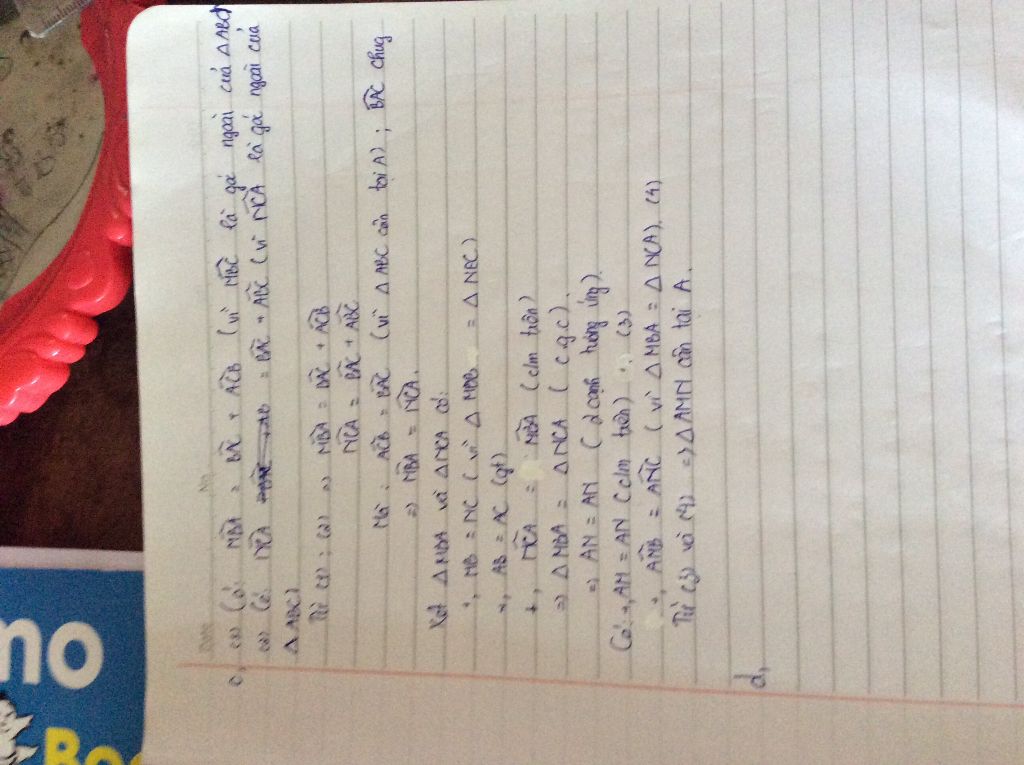 Date No
c, (1) Có: MBA = BAC + ACB (vì MBC là gó ngoài của ΔABC)
(2) Có: NCA = BAC + ABC (vì NCA là gó ngoài của
ΔABC)
Từ (1); (2) => MBA = BAC + ACB
NCA = BAC + ABC
Mà: ACB = BAC (vì ΔABC cân tại A); BAC chug
=> MBA = NCA.
Xét ΔMBA và ΔNCA có:
+, MB = NC (vì ΔMDB = ΔNEC)
+, AB = AC (gt)
+, NCA = MBA (c/m trên)
=> ΔMBA = ΔNCA (c.g.c).
=> AM = AN (2 cạnh tương ứng).
Có: +, AM = AN (c/m trên). (3)
+, AMB = ANC (vì ΔMBA = ΔNCA). (4)
Từ (3) và (4) => ΔAMN cân tại A.
d,
mo
Bo